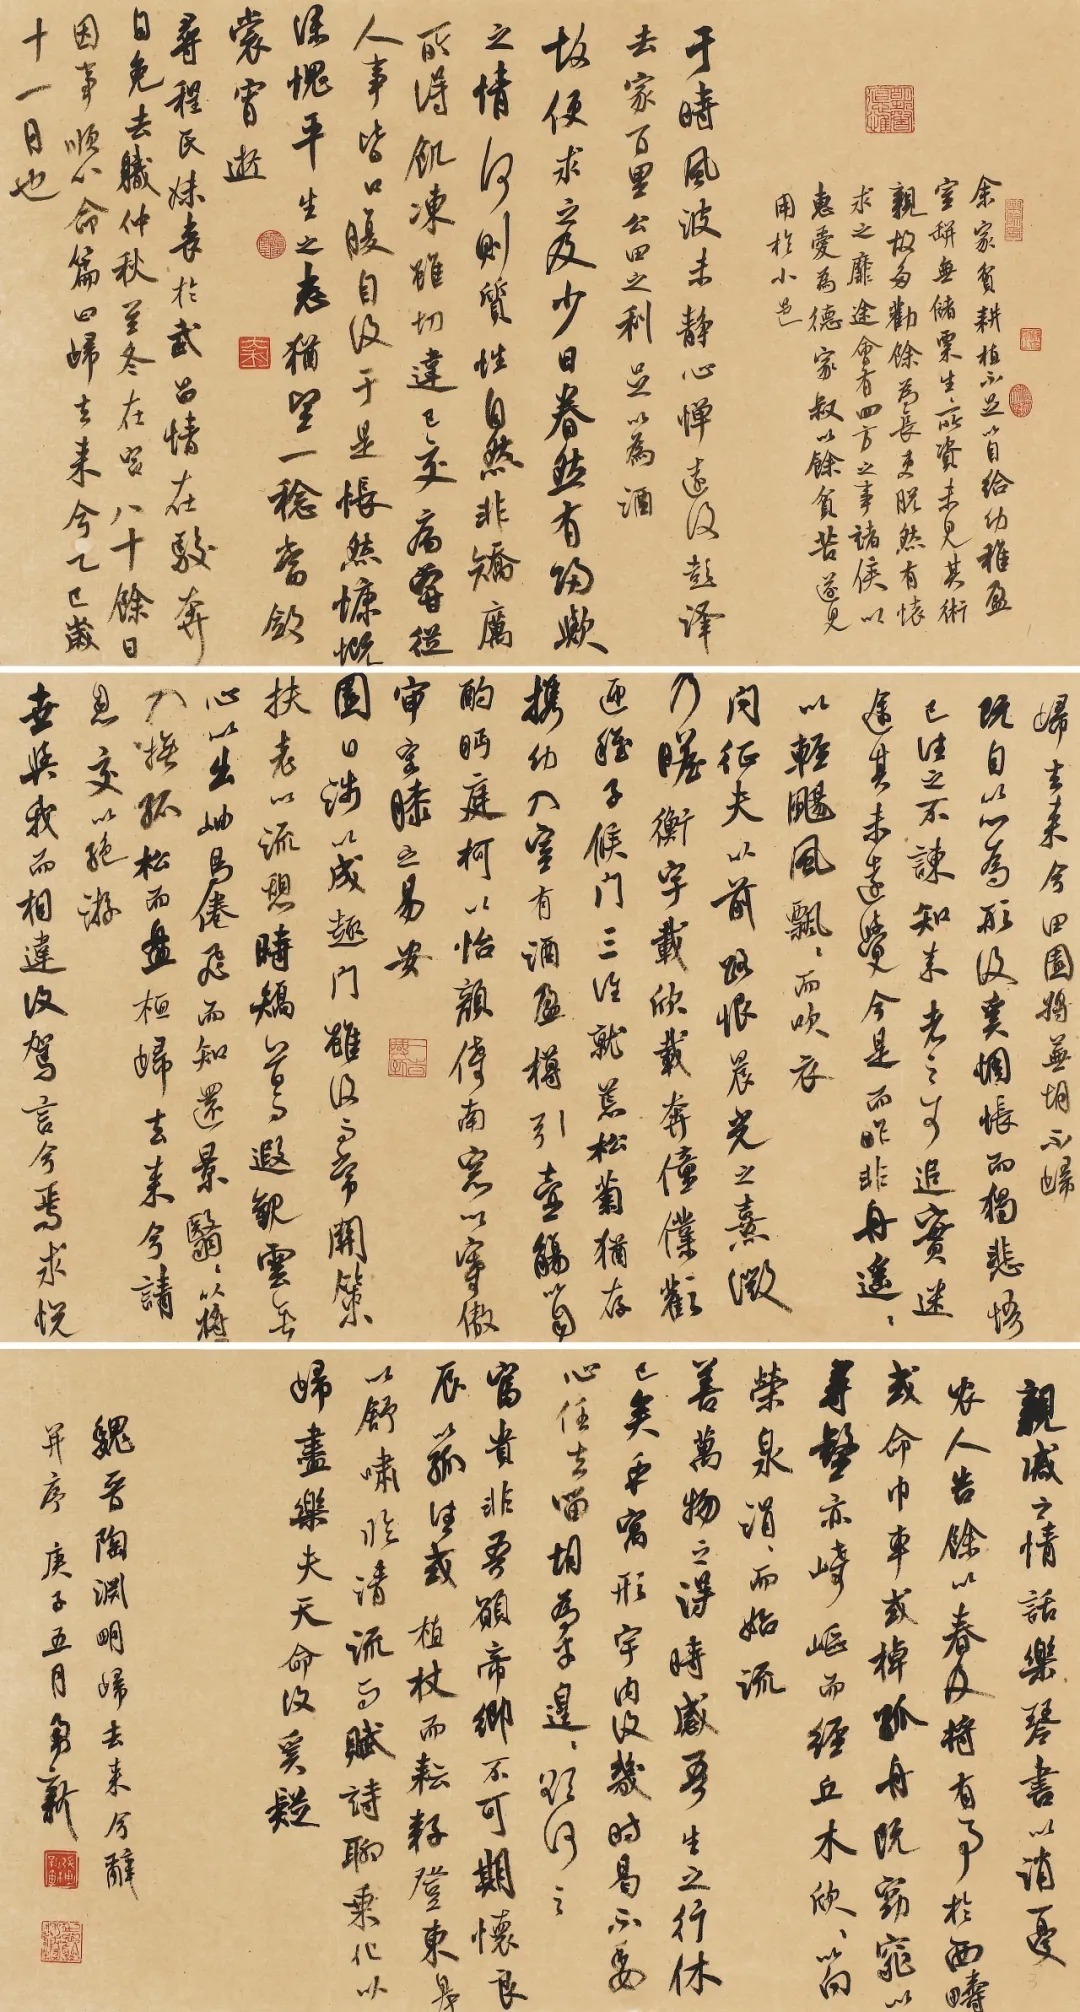 余家貧耕植不足以自給幼稚盈
室缾無儲粟生〻所資未見其術
親故多勸餘為長吏脫然有懷
求之靡途會有四方之事諸侯以
惠愛為德家叔以餘貧苦遂見
用於小邑
于時風波未靜心憚遠役彭澤
去家百里公田之利足以為酒
故便求之及少日眷然有歸歟
之情何則質性自然非矯厲
所得飢凍雖切違已交病嘗從
人事皆口腹自役于是悵然慷慨
深愧平生之志猶望一稔當斂
裳宵逝
尋程氏妹喪於武昌情在駿奔
自免去職仲秋至冬在官八十餘日
因事順心命篇曰歸去來兮乙巳歲
十一月也
歸去來兮田園將蕪胡不歸
既自以心為形役奚惆悵而獨悲悟
已往之不諫知來者之可追實迷
途其未遠覺今是而昨非舟遙〻
以輕颺風飄〻而吹衣
問征夫以前路恨晨光之熹微
乃瞻衡宇載欣載奔僮僕歡
迎稚子候門三徑就荒松菊猶存
攜幼入室有酒盈樽引壺觴以自
酌眄庭柯以怡顏倚南窗以寄傲
審容膝之易安
園日涉以成趣門雖設而常關策
扶老以流憩時矯首而遐觀雲無
心以出岫鳥倦飛而知還景翳〻以將
入撫孤松而盤桓歸去來兮請
息交以絕游
世與我而相違復駕言兮焉求悅
親戚之情話樂琴書以消憂
農人告餘以春及將有事於西疇
或命巾車或棹孤舟既窈窕以
尋壑亦崎嶇而經丘木欣〻以向
榮泉涓〻而始流
善萬物之得時感吾生之行休
已矣乎寓形宇內復幾時曷不委
心任去留胡為乎遑〻欲何之
富貴非吾願帝鄉不可期懷良
辰以孤往或植杖而耘耔登東皋
以舒嘯臨清流而賦詩聊乘化以
歸盡樂夫天命復奚疑
魏晉陶淵明歸去來兮辭
并序庚子五月勇新